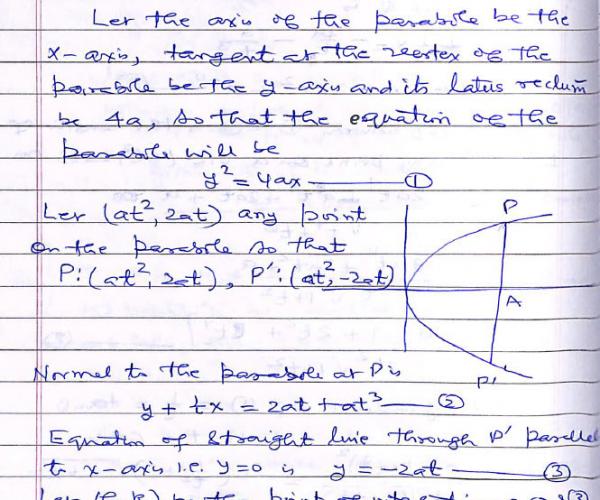 Let the axis of the parabola be the
x-axis, tangent at the vertex of the
parabola be the y-axis and its latus rectum
be 4a, so that the equation of the
parabola will be
y² = 4ax — ①
Let (at², 2at) any point
on the parabola so that
P:(at², 2at), P':(at², -2at)
P
A
P'
Normal to the parabola at P is
y + tx = 2at + at³ — ②
Equation of straight line through P' parallel
to x-axis i.e. y=0 is y = -2at — ③